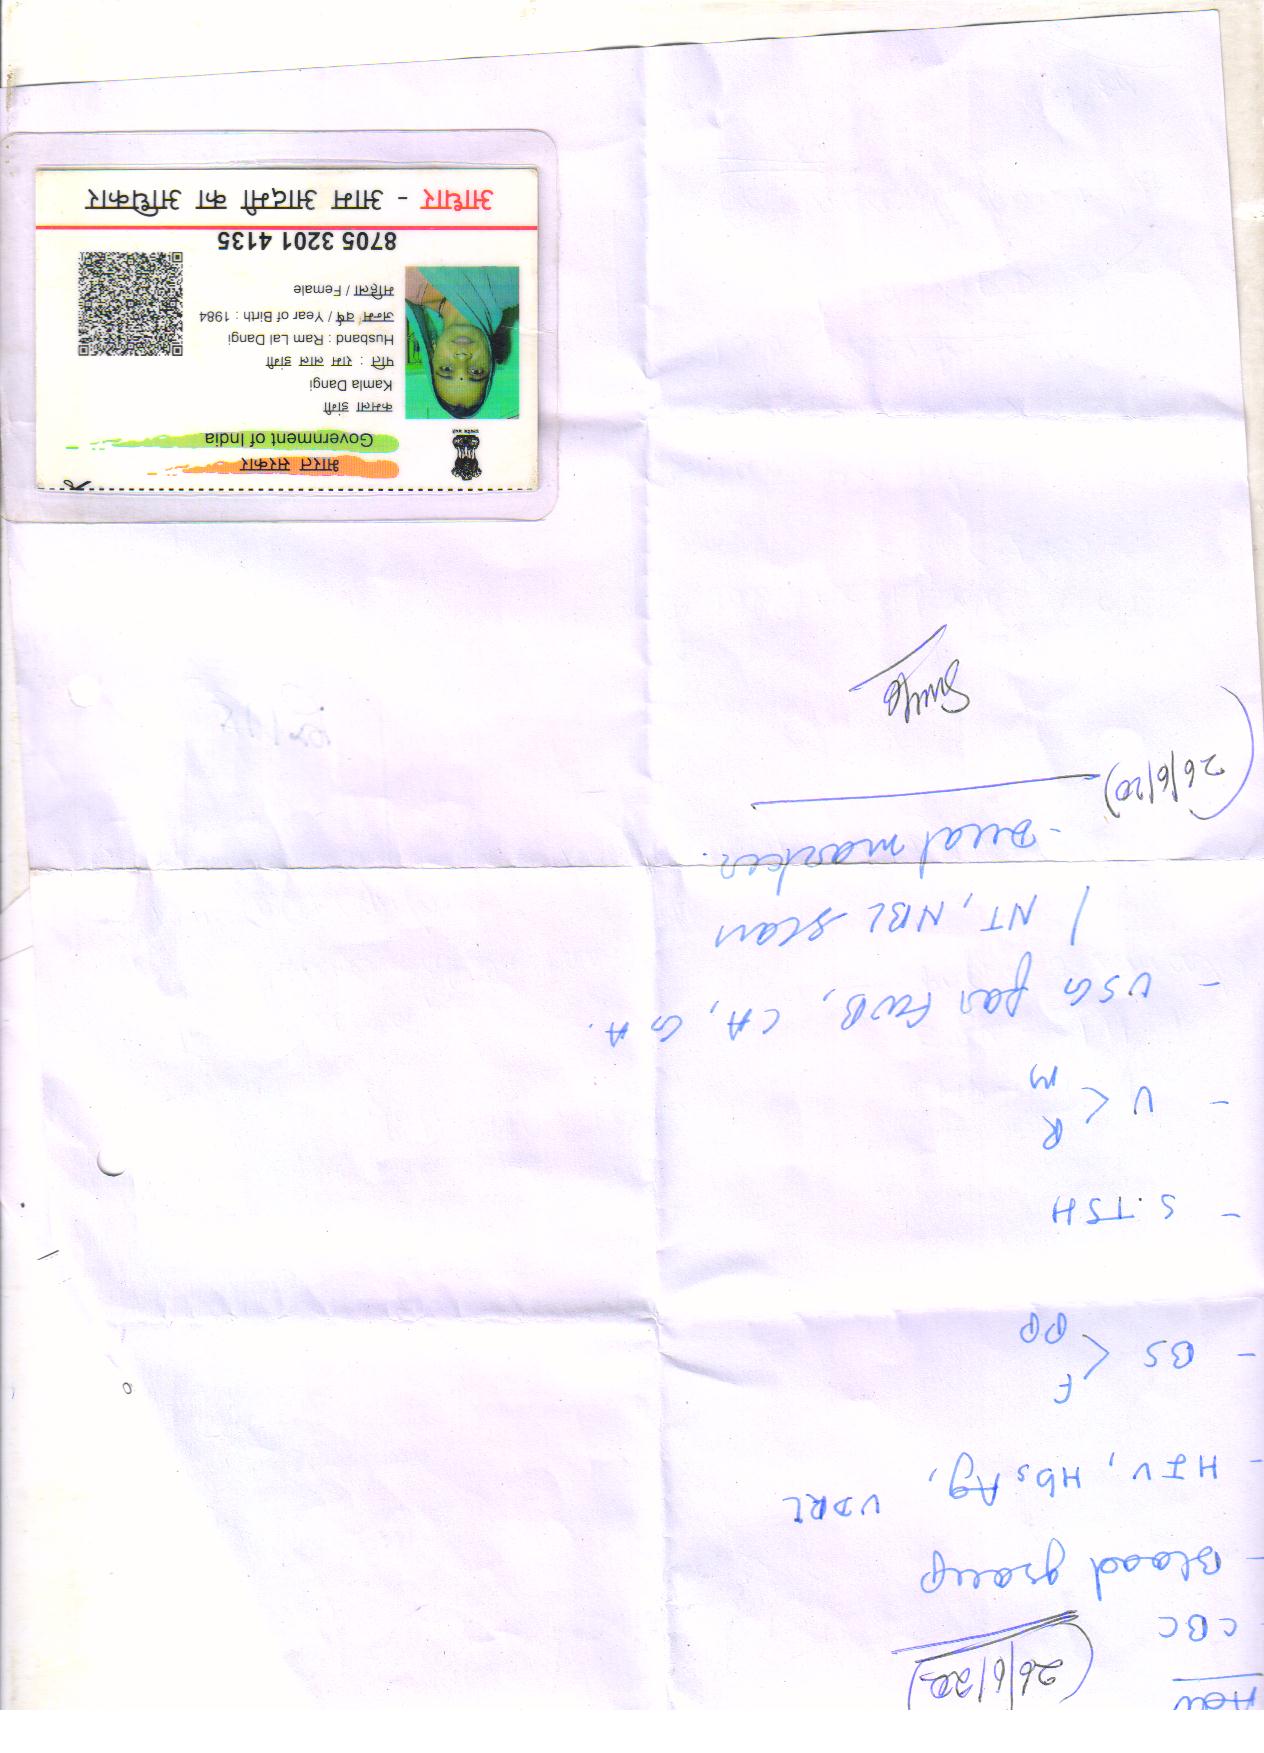 Adv
(26/6/20)
- CBC
- Blood group
- HIV, HbsAg, VDRL
- BS < F
PP
- S.TSH
- U < R
M
- USG for FWB, CA, GA.
/ NT, NBL scan
- Dual marker.
(26/6/20)
भारत सरकार
Government of India
कमला डांगी
Kamla Dangi
पति : राम लाल डांगी
Husband : Ram Lal Dangi
जन्म वर्ष / Year of Birth : 1984
महिला / Female
8705 3201 4135
आधार - आम आदमी का अधिकार